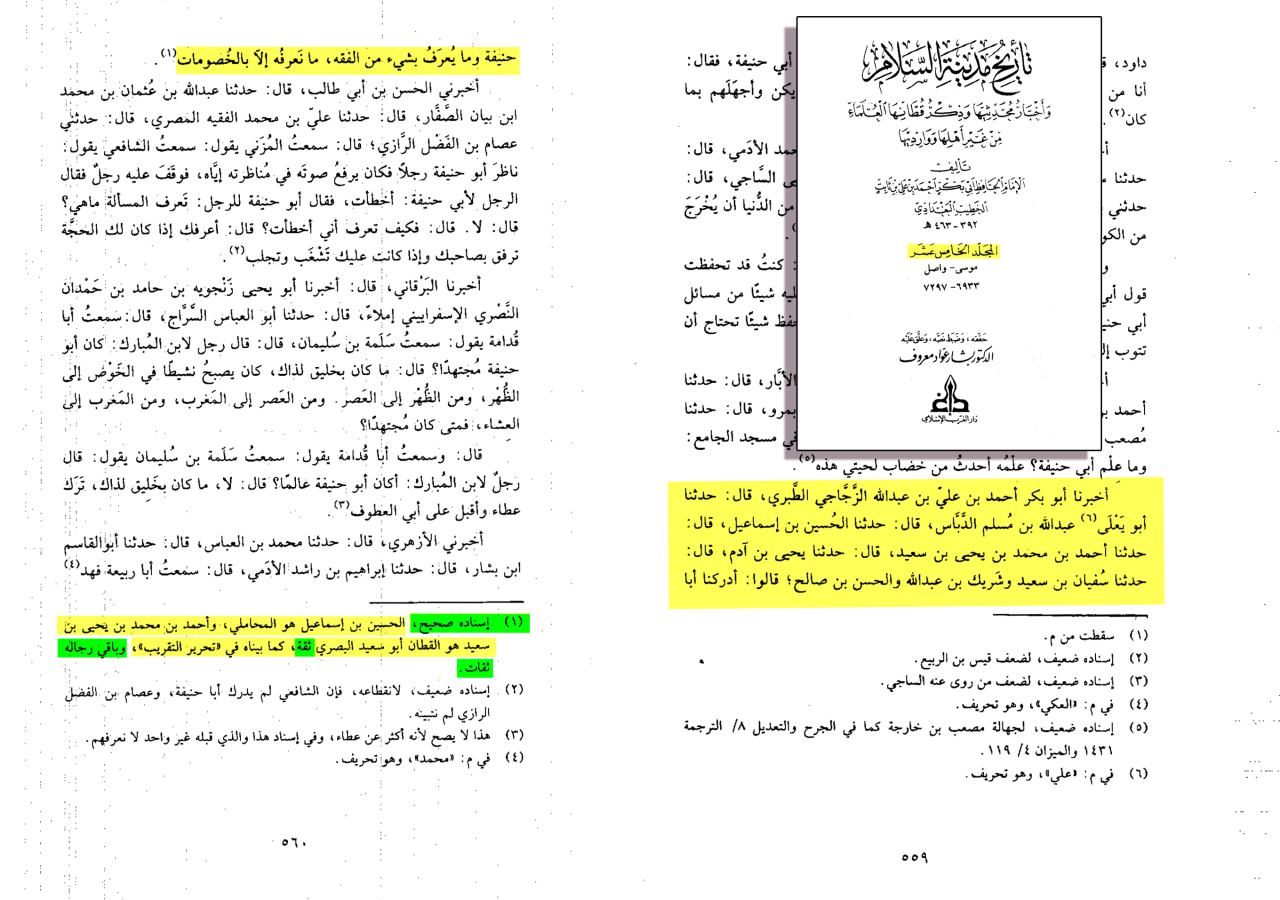 داود، ق
أبي حنيفة، فقال:
أنا من
يكن وأجهَلَهم بما
كان(٢).
حمد الأدَمي، قال:
حدثنا
ى السَّاجي، قال:
حدثني
من الدُّنيا أن يُخْرَجَ
من الكو
: كنتُ قد تحفظت
قول أبي
ليه شيئًا من مسائل
أبي حني
حفظ شيئًا تحتاج أن
تتوب إل
الأبَّار، قال: حدثنا
أحمد ب
بمرو، قال: حدثنا
مُصعب
في مسجد الجامع:
وما علِم أبي حنيفة؟ علْمُه أحدثُ من خضاب لحيتي هذه(٥).
أخبرنا أبو بكر أحمد بن عليّ بن عبدالله الزَّجَّاجي الطَّبري، قال: حدثنا
أبو يَعْلَى(٦) عبدالله بن مُسلم الدَّبَّاس، قال: حدثنا الحُسين بن إسماعيل، قال:
حدثنا أحمد بن محمد بن يحيى بن سعيد، قال: حدثنا يحيى بن آدم، قال:
حدثنا سُفيان بن سعيد وشَريك بن عبدالله والحسن بن صالح؛ قالوا: أدركنا أبا
(١) سقطت من م.
(٢) إسناده ضعيف، لضعف قيس بن الربيع.
(٣) إسناده ضعيف، لضعف من روى عنه الساجي.
(٤) في م: «العكي»، وهو تحريف.
(٥) إسناده ضعيف، لجهالة مصعب بن خارجة كما في الجرح والتعديل ٨/ الترجمة
١٤٣١ والميزان ٤/ ١١٩.
(٦) في م: «علي»، وهو تحريف.
٥٥٩
تأريخ مدينة السلام
وأخبار محدثيها وذكر قطانها العلماء
من غير أهلها ووارديها
تأليف
الإمام الحافظ أبي بكر أحمد بن علي بن ثابت
الخطيب البغدادي
٣٩٢-٤٦٣ هـ
المجلد الخامس عشر
موسى- واصل
٦٩٣٣- ٧٢٩٧
حققه، وضبط نصه، وعلق عليه
الدكتور بشار عواد معروف
دار الغرب الإسلامي
حنيفة وما يُعرَفُ بشيء من الفقه، ما نَعرفُه إلاَّ بالخُصومات(١).
أخبرني الحسن بن أبي طالب، قال: حدثنا عبدالله بن عُثمان بن محمد
ابن بيان الصَّفَّار، قال: حدثنا عليّ بن محمد الفقيه المصري، قال: حدثني
عصام بن الفَضْل الرَّازي؛ قال: سمعتُ المُزَني يقول: سمعتُ الشافعي يقول:
ناظرَ أبو حنيفة رجلاً فكان يرفعُ صوتَه في مُناظرته إيَّاه، فوقَفَ عليه رجلٌ فقال
الرجل لأبي حنيفة: أخطأت، فقال أبو حنيفة للرجل: تَعرف المسألة ماهي؟
قال: لا. قال: فكيف تعرف أني أخطأت؟ قال: أعرفك إذا كان لك الحجَّة
ترفق بصاحبك وإذا كانت عليك تَشْغَب وتجلب(٢).
أخبرنا البَرْقاني، قال: أخبرنا أبو يحيى زَنْجويه بن حامد بن حَمْدان
النَّصْري الإسفراييني إملاءً، قال: حدثنا أبو العباس السَّرَّاج، قال: سمعتُ أبا
قُدامة يقول: سمعتُ سَلَمة بن سُليمان، قال: قال رجل لابن المُبارك: كان أبو
حنيفة مُجتهدًا؟ قال: ما كان بخليق لذاك، كان يصبحُ نشيطًا في الخَوْض إلى
الظُّهْر، ومن الظُّهْر إلى العَصر. ومن العَصر إلى المَغرب، ومن المَغرب إلى
العِشاء، فمتى كان مُجتهدًا؟
قال: وسمعتُ أبا قُدامة يقول: سمعتُ سَلَمة بن سُليمان يقول: قال
رجلٌ لابن المُبارك: أكان أبو حنيفة عالمًا؟ قال: لا، ما كان بخَليق لذاك، تَرَك
عطاء وأقبل على أبي العطوف(٣).
أخبرني الأزهري، قال: حدثنا محمد بن العباس، قال: حدثنا أبو القاسم
ابن بشار، قال: حدثنا إبراهيم بن راشد الأدَمي، قال: سمعتُ أبا ربيعة فهد(٤)
(١) إسناده صحيح، الحسين بن إسماعيل هو المحاملي، وأحمد بن محمد بن يحيى بن
سعيد هو القطان أبو سعيد البصري ثقة، كما بيناه في «تحرير التقريب»، وباقي رجاله
ثقات.
(٢) إسناده ضعيف، لانقطاعه، فإن الشافعي لم يدرك أبا حنيفة، وعصام بن الفضل
الرازي لم نتبينه.
(٣) هذا لا يصح لأنه أكثر عن عطاء، وفي إسناد هذا والذي قبله غير واحد لا نعرفهم.
(٤) في م: «محمد»، وهو تحريف.
٥٦٠